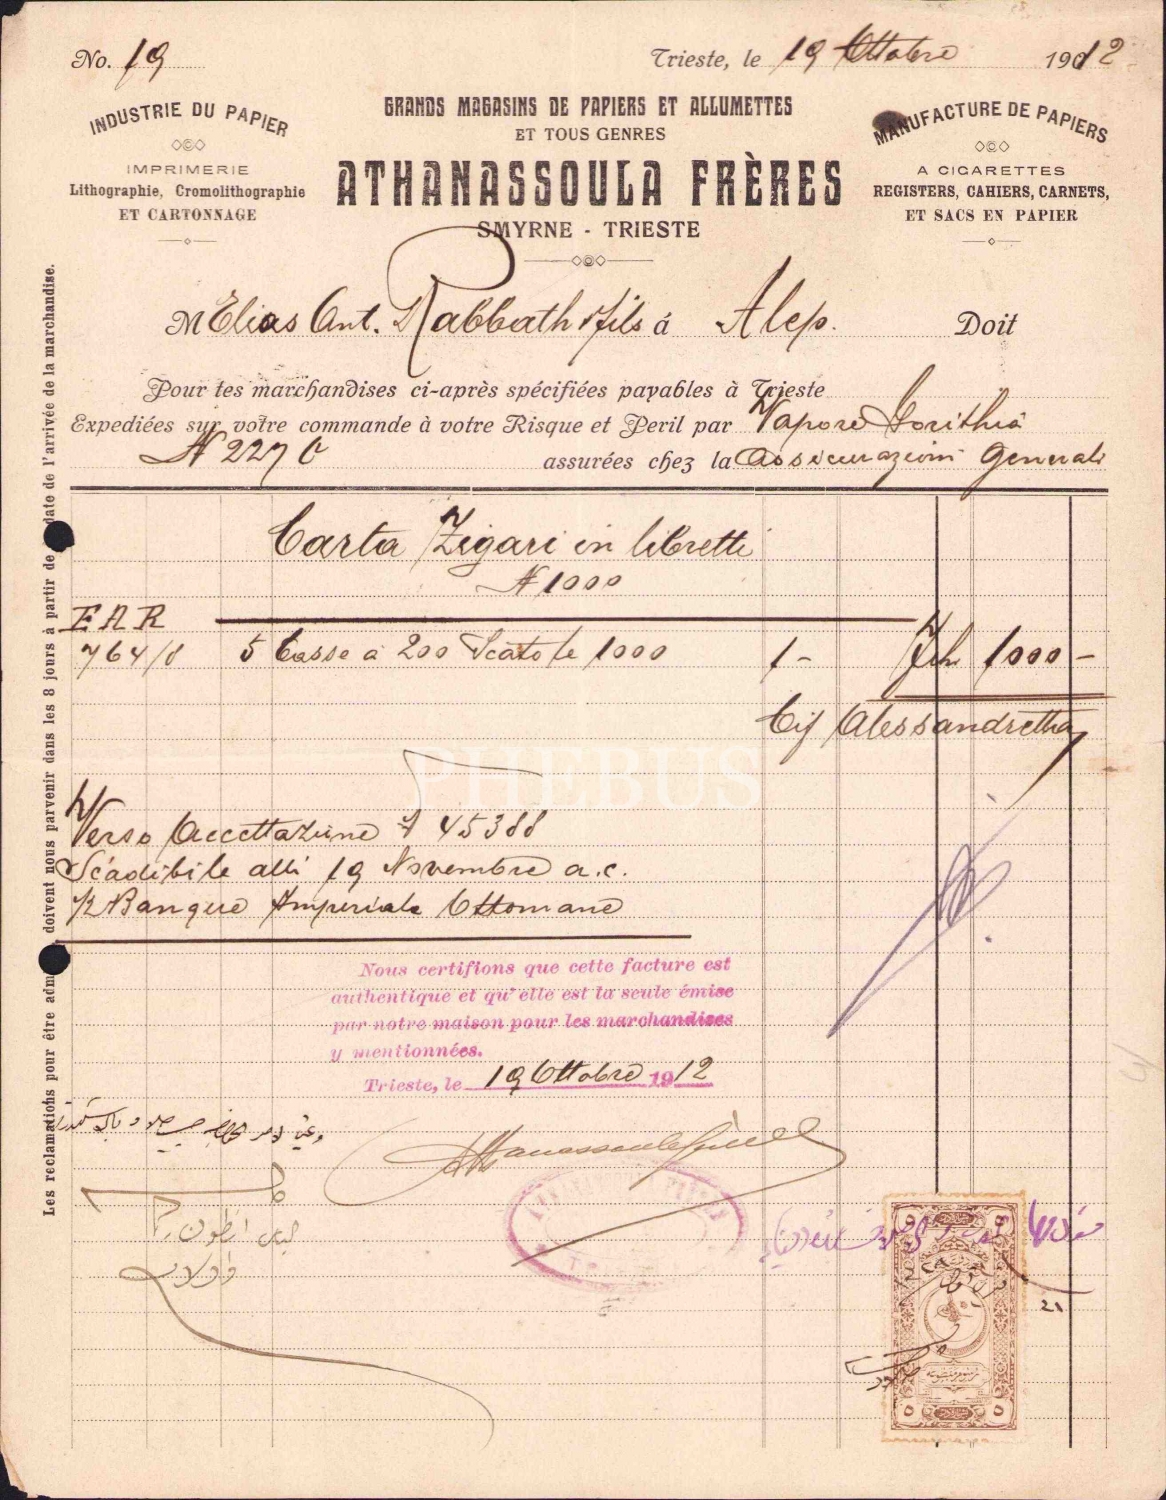 No. 19
Trieste, le 19 Ottobre 1912
INDUSTRIE DU PAPIER
IMPRIMERIE
Lithographie, Cromolithographie
ET CARTONNAGE
GRANDS MAGASINS DE PAPIERS ET ALLUMETTES
ET TOUS GENRES
ATHANASSOULA FRÈRES
SMYRNE - TRIESTE
MANUFACTURE DE PAPIERS
A CIGARETTES
REGISTERS, CAHIERS, CARNETS,
ET SACS EN PAPIER
M Elias Ant. Rabbath & fils à Alep. Doit
Pour les marchandises ci-après spécifiées payables à Trieste
Expediées sur votre commande à votre Risque et Peril par Vapore
N 227 C assurées chez la Assicurazioni Generali
Carta Zigari in libretti
N 1000
EAR
764/8 5 Casse a 200 Scatole 1000 1- 1000-
Cif Alessandretta
PHEBUS
Verso Accettazione N 45388
Scadibile alli 19 Novembre a.c.
Banque Imperiale Ottomane
Nous certifions que cette facture est
authentique et qu'elle est la seule émise
par notre maison pour les marchandises
y mentionnées.
Trieste, le 19 Ottobre 1912
Athanassoula Frères
ATHANASSOULA FRÈRES
TRIESTE
الياس انطون رباط
واولاده
٢١
٥ ٥
Les reclamations pour être adm doivent nous parvenir dans les 8 jours à partir de date de l'arrivée de la marchandise.